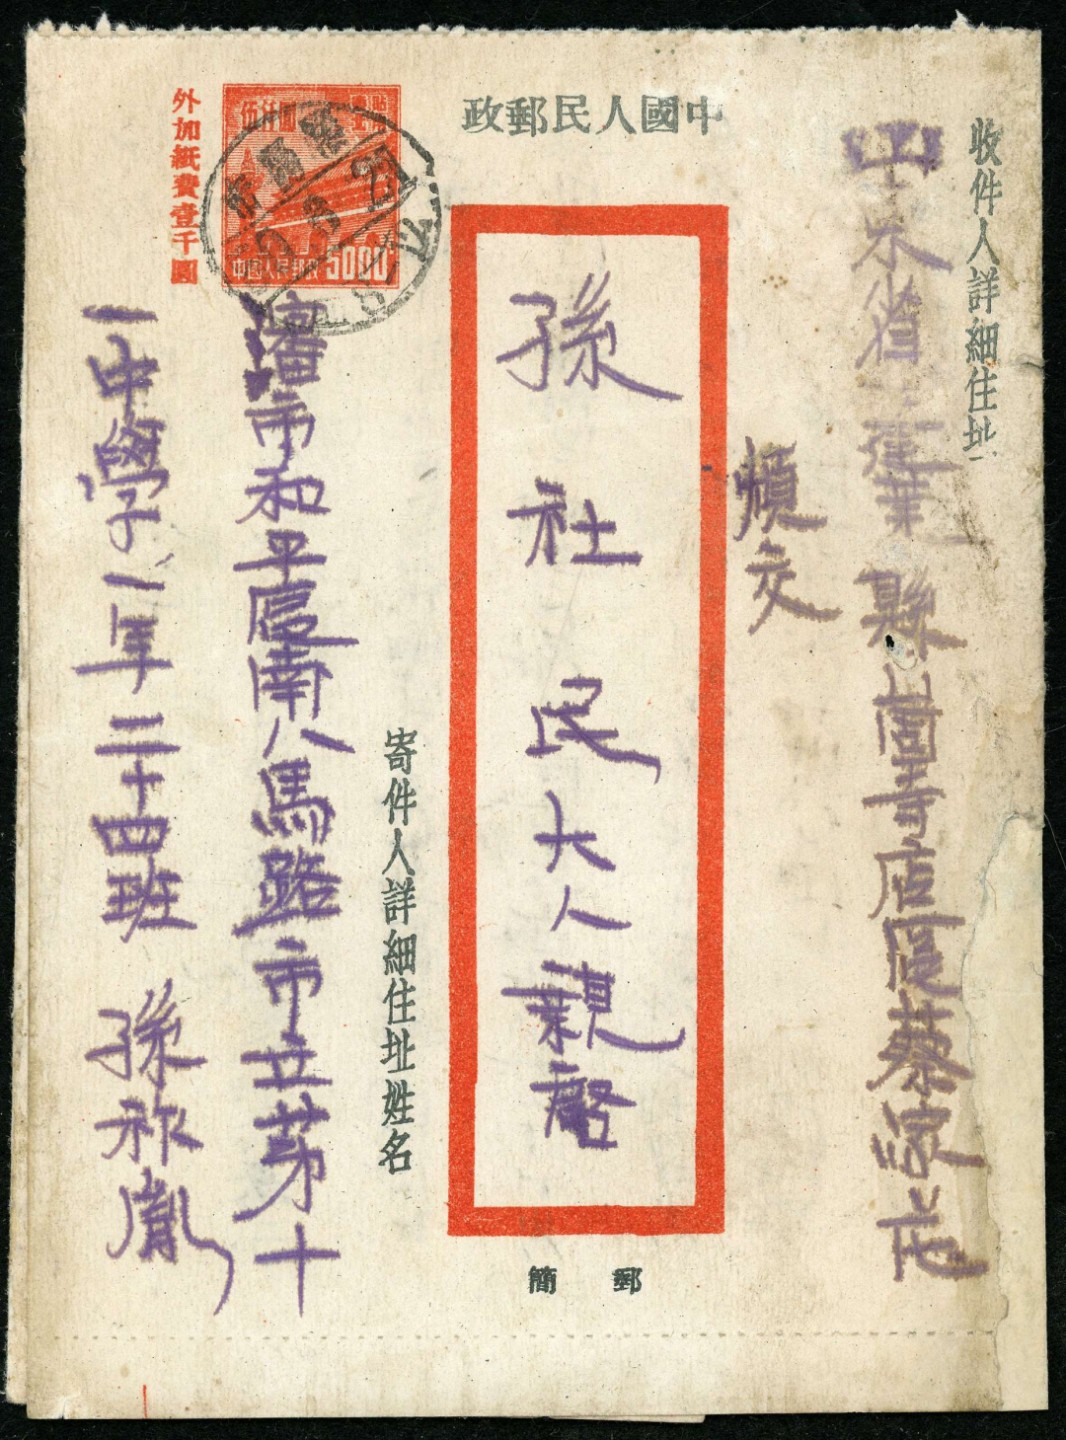 中國人民郵政
收件人詳細住址
山东省蓬莱縣崮寺店區蔡
煩交
孫社民大人親啓
郵簡
寄件人詳細住址姓名
瀋市和平區南八馬路市立第十
一中學一年二十四班 孫祚胤
外加紙費壹千圓
伍仟圓
中國人民郵政 5000